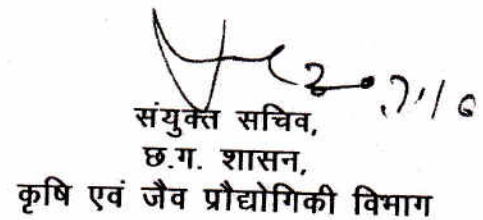 संयुक्त सचिव,
छ.ग. शासन,
कृषि एवं जैव प्रौद्योगिकी विभाग